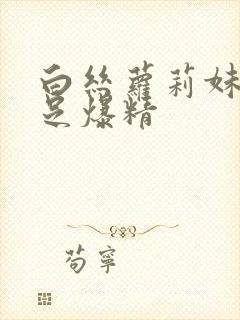 白丝萝莉妹
足爆精
苟宁